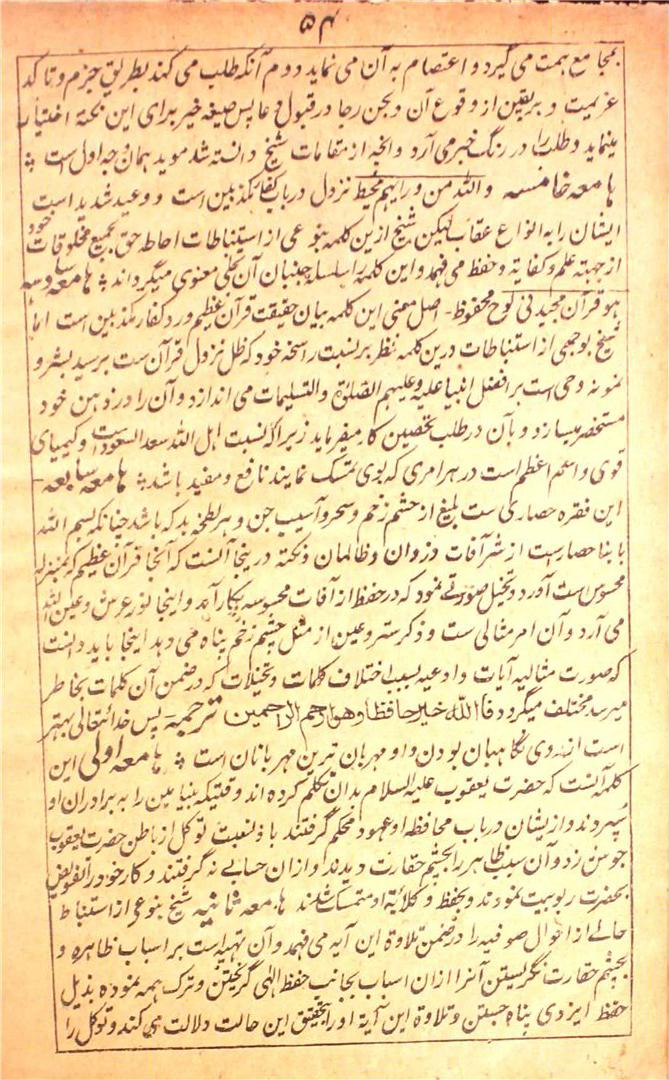 ۵۴
بمجامع همت می گیرد و اعتصام به آن می نماید دوم آنکه طلب می کند بطریق جزم و تاکد
عزیمت و بر یقین از وقوع آن و بحسن رجا در قبول دعا پس صیغه خبر برای این نکته اختیار
مینماید و طلب را در رنگ خبر می آرد و انچه از مقامات شیخ دانسته شد موید همان وجه اول است
هامعه خامسه والله من ورایهم محیط نزول در باب کفار مکذبین است و وعید شدید است
ایشان را به انواع عقاب لیکن شیخ ازین کلمه بنوعی از استنباطات احاطه حق بجمیع مخلوقات خود
از جهته علم و کفایة و حفظ می فهمد و این کلمه را سلسله جنبان آن تجلی معنوی میگرداند هامعه سادسه
هو قرآن مجید فی لوح محفوظ اصل معنی این کلمه بیان حقیقت قرآن عظیم و رد کفار مکذبین است اما
شیخ بوجهی از استنباطات درین کلمه نظر بر نسبت راسخه خود که ظل نزول قرآن ست بر سید بشر و
نمونه وحی است بر افضل انبیا علیه و علیهم الصلوة والتسلیمات می اندازد و آن را در ذهن خود
مستحضر میسازد و بآن در طلب تحصین کار میفرماید زیرا که نسبت اهل الله سعد السعود ست و کیمیای
قوی و اسم اعظم است در هر امری که بوی تمسک نمایند نافع و مفید باشد هامعه سابعه
این فقره حصاری ست بلیغ از چشم زخم و سحر و آسیب جن و هر لطخه بد که باشد چنانکه بسم الله
بابنا حصاریست از شر آفات دزدان و ظالمان و نکته در ینجا آنست که آنجا قرآن عظیم که بمنزله
محسوس ست آورد و تخیل صورتے نمود که در حفظ از آفات محسوسه بکار آید و اینجا نور عرش و عین الله
می آرد و آن امر مثالی ست و ذکر ستر و عین از مثل چشم زخم پناه می دهد اینجا باید دانست
که صورت مثالیه آیات و ادعیه بسبب اختلاف کلمات و تخیلات که در ضمن آن کلمات بخاطر
میرسد مختلف میگردد فالله خیر حافظا و هو ارحم الراحمین ترجمه پس خدا تعالی بهتر
است از روی نگاهبان بودن و او مهربان ترین مهربانان است هامعه اولی این
کلمه آنست که حضرت یعقوب علیه السلام بدان تکلم کرده اند وقتیکه بنیامین را به برادران او
سپردند و از ایشان در باب محافظه او عهود محکم گرفتند باز نسبت توکل از باطن حضرت یعقوب
جوش زد و آن سبب ظاهر را بچشم حقارت دیدند و ازان حسابی نه گرفتند و کار خود را تفویض
بحضرت ربوبیت نمودند و بحفظ و کلائة او متمسک شدند هامعه ثانیه شیخ بنوعی از استنباط
حالے از احوال صوفیه را در ضمن تلاوة این آیه می فهمد و آن تنبیه است بر اسباب ظاهره و
بچشم حقارت نگریستن آنرا ازان اسباب بجانب حفظ الهی گریختن و ترک همه نموده بذیل
حفظ ایزدی پناه جستن و تلاوة این آیة او را بتحقیق این حالت دلالت می کند و توکل را